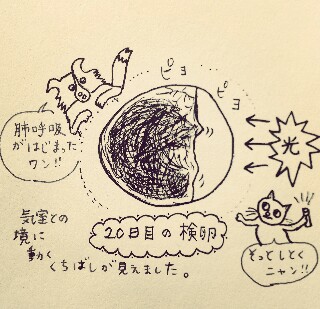 ピヨ
ピヨ
肺呼吸
がはじまった
ワン!!
光
気室との
境に
動く
くちばしが見えました。
20日目の検卵
そっとしとく
ニャン!!